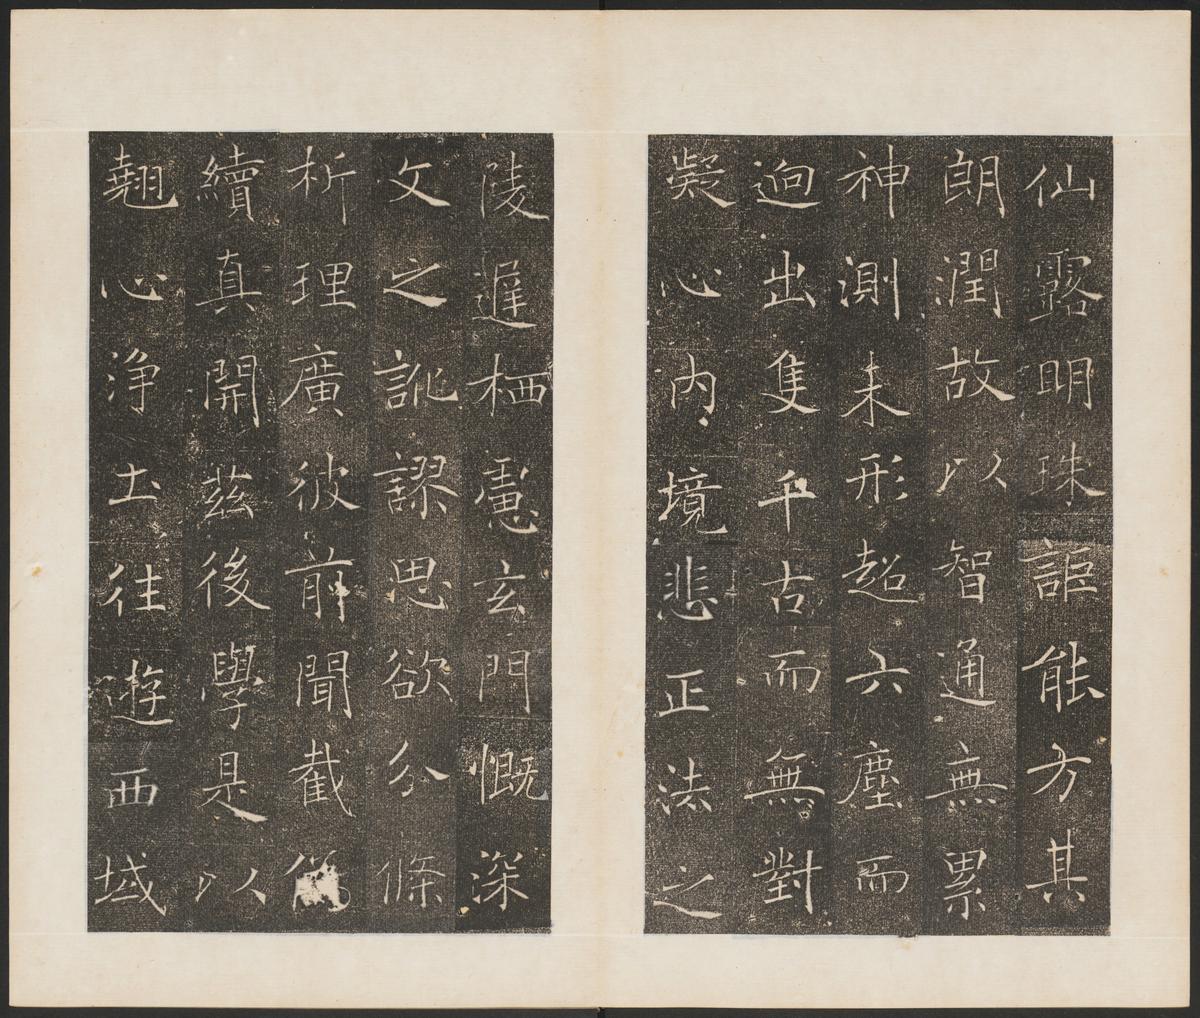 仙露明珠詎能方其
朗潤故以智通無累
神測未形超六塵而
逈出隻千古而無對
凝心内境悲正法之
陵遲栖慮玄門慨深
文之訛謬思欲分條
析理廣彼前聞截僞
續真開茲後學是以
翹心浄土往遊西域